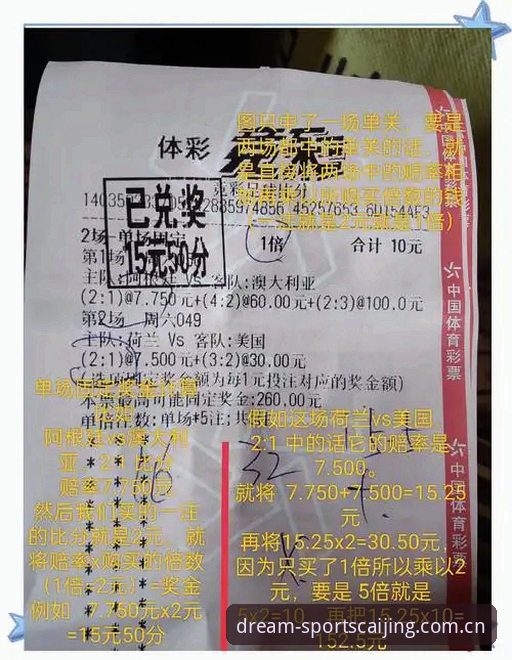 体彩 竞彩
图只中了一场单关，要是
两场都中的单关的话，就
是直接将两场中的赔率相
（一注就是2元就是1倍）
已兑奖
15元50分
2场-单场固定
1倍
合计 10元
主队:阿根廷 Vs 客队:澳大利亚
(2:1)@7.750元+(4:2)@60.00元+(2:3)@100.0元
第2场 周六049
主队:荷兰 Vs 客队:美国
(2:1)@7.500元+(3:2)@30.00元
(选项固定奖金额为每1元投注对应的奖金额)
本票最高可能固定奖金:260.00元
单倍注数:单场*5注;共
单场固定奖金计算
阿根廷vs澳大利
亚 2:1 比分
赔率7.750元
然后我们买的一注
的比分就是2元，就
将赔率x购买的倍数
（1倍=2元）=奖金
例如 7.750元x2元
=15元50分
假如这场荷兰vs美国
2:1 中的话它的赔率是
7.500。
就将 7.750+7.500=15.25
元
再将15.25x2=30.50元，
因为只买了1倍所以乘以2
元，要是 5倍就是
5x2=10，再把15.25x10=
152.5元
中国体育彩票
中国体育彩票
dream-sportscaijing.com.cn